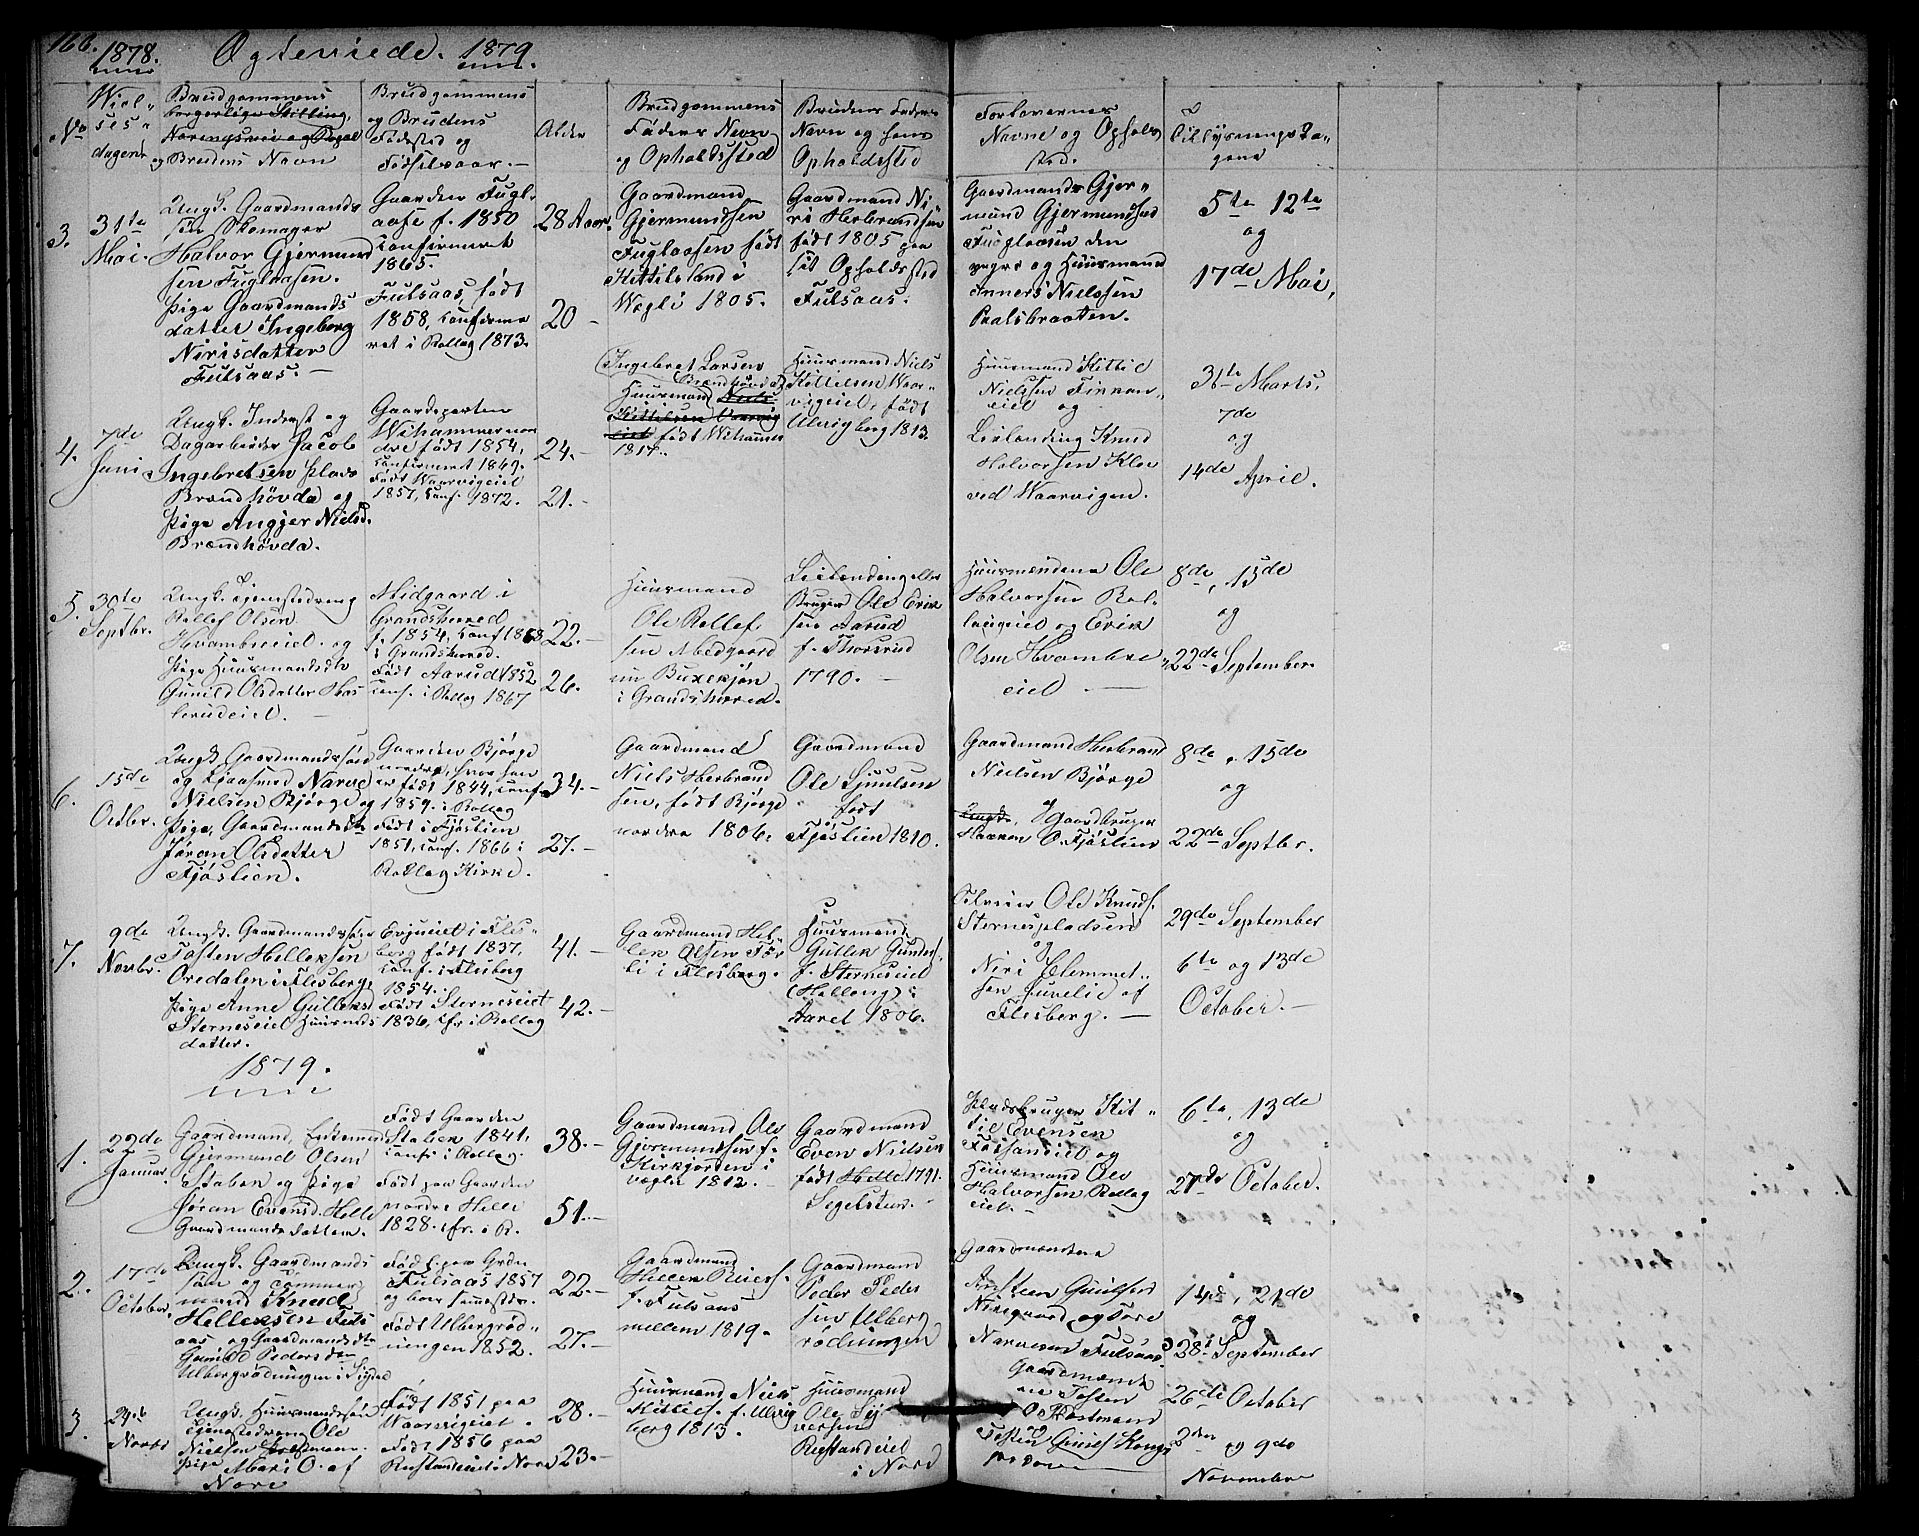 166. 1878. Ogteviede. 1879
No
Viel-
ses-
dagene
Brudgommens
borgerlige Stilling,
og Brudens Navn
Brudgommens
og Brudens
Födested og
Födselsaar.
Alder
Brudgommens
Faders Navn
og Opholdssted
Brudens Faders
Navn og hans
Opholdssted
Forlovernes
Navne og Opholds
sted.
Tillysnings Da-
gene
3.
31te
Mai.
Ungk. Gaardmands
sön Skomager
Halvor Gjermund
sen Fuglaasen.
Pige Gaardmands
datter Ingeborg
Nirisdatter
Fulsaas.
Gaarden Fugl-
aase f. 1850
Confirmeret
1865.
Fulsaas, født
1858, Confirme
ret i Rollag 1873.
28 Aar.
20
Gaardmand
Gjermundsen
Fuglaasen født
Kittilsland i
Vægli 1805.
Gaardmand Ni-
ri Herbrandsen
født 1805 paa
sit Opholdssted
Fulsaas.
Gaardmands Gjer-
mund Gjermundsen
Fuglaasen den
yngre og Huusmand
Anners Nielssen
Paalsbraaten.
5te 12te
og
17de Mai,
4.
7de
Juni
Ungk. Inderst og
Dagarbeider Jacob
Ingebretsen Plads
Brændhövda og
Pige Angjer Nielsd.
Brændhövda.
Gaardsparten
Wihammer nor
dre født 1854,
Confirmeret 1869.
Født Waarvigeiet
1857, Conf. 1872.
24.
21.
Ingebret Larsen
Brændhövda
Huusmand Niels
Kittelsen Vaarvig
eiet født Wihamer
1817.
Huusmand Niels
Kittilsen Waar-
vigeiet, født
Ulvigberg 1813.
Huusmand Kittil
Nielssen Finnan
eiet og
Leilending Knud
Halvorsen Klev
ved Waarvigen.
31te Marts,
7de
og
14de April.
5.
30te
Septbr.
Ungk. Tjenestedreng
Rollef Olsen
Hvambseiet og
Pige Huusmandsdtr
Gunild Olsdatter Has
lerudeiet.
Midgaard i
Grandsherred
f. 1854, Conf 1868
i Grandsherred.
Født Aarud 1852
Conf. i Rollag 1867
22.
26.
Huusmand
Ole Rollef
sen Medgaard
un Buxekjøn
i Grandsherred.
Leilending eller
Bruger Ole Erik
sen Aarud
f. Thorsrud
1790.
Huusmændene Ole
Halvorsen Rol-
lageiet og Erik
Olsen Hvambs
eiet
8de, 15de
og
22de September.
6.
15de
Octbr.
Ungk. Gaardmandssön
Narve
Nielsen Bjørge og
Pige, Gaardmandsdtr
Jøran Olsdatter
Fjøslien.
Gaarden Bjørge
nordre, hvor han
er født 1844, Conf.
1859. i Rollag
Født i Fjøslien
1851, Conf. 1866 i
Rollag Kirke.
34.
27.
Gaardmand
Niels Herbrand
sen, født Bjørge
nordre 1806.
Gaardmand
Ole Sjuulsen
født
Fjøslien 1810.
Gaardmand Herbrand
Nielsen Bjørge
og
Ungk. Gaardbruger
Haaron O. Fjøslien
8de, 15de
og
22de Septbr.
7.
9de
Novbr.
Ungk. Gaardmandssön
Tosten Helleksen
Øvedalen i Flesberg,
Pige Anne Gulleksd
Sterneseiet Huusmds
datter.
Evjueiet i Fles-
berg født 1837,
Conf. i Flesberg
1854.
Født Sterneseiet
1836, Cfr. i Rollag
41.
42.
Gaardmand Hel-
lek Olsen Før
li i Flesberg.
Huusmand
Gullek Gunders.
f. Sterneseiet
i
Aaret 1806.
Ole Knuds.
Sternespladsen
og
Niri Clemmet-
sen Juvelie af
Flesberg.
29de September
6te og 13de
October.
1879.
1.
22de
Januar.
Gaardmand, Enkemand
Gjermund Olsen
Staben og Pige
Jøran Evensd. Helle
Gaardmandsdatter.
Født Gaarden
Staben 1841,
Conf. i Rollag.
Født paa Gaarden
nordre Helle
1828. cfr. i R.
38.
51.
Gaardmand Ole
Gjermundsen f.
Kirkjorten i
Vægli 1812.
Gaardmand
Even Nielsen
født Helle 1791.
Segelstun.
Pladsbruger Kit-
til Evensen
Fossaneiet og
Huusmand Ole
Halvorsen Rollag
eiet.
6te, 13de
og
27de October.
2.
17de
October.
Ungk. Gaardmands
sön og Tömmer
mand Knud
Helleksen Fuls
aas og Gaardmandsdtr
Gunild Pedersdtr
Ulbergrødningen i Sigdal
Født paa Grdn
Fulsaas 1857
og boer sammesteds.
Født Ulbergrød-
ningen 1852.
22.
27.
Gaardmand
Hellek Reiers.
f. Fulsaas
mellem 1819.
Gaardmand
Peder Peder
sen Ulberg
rødningen
Gaardmændene
Nisgaard, og Tore
Narvesen Fulsaas
14de, 21de
og
28de September
3.
29de
Novbr
Ungk. Huusmandssön
Tjenestedreng Ole
Nielsen
Pige Mari O. af
Nore
Født 1851 paa
Waarvigeiet.
Født 1856 paa
Rustandeiet i Nore
28.
23.
Huusmand Niels
Kittils. f. Ulvig
berg 1813.
Huusmand
Ole Sj
versen
Rustandeiet
i Nore
Gaardmænde
ne Tosten
O. Portmand
Tosten
26de October
2den
og 9de
November